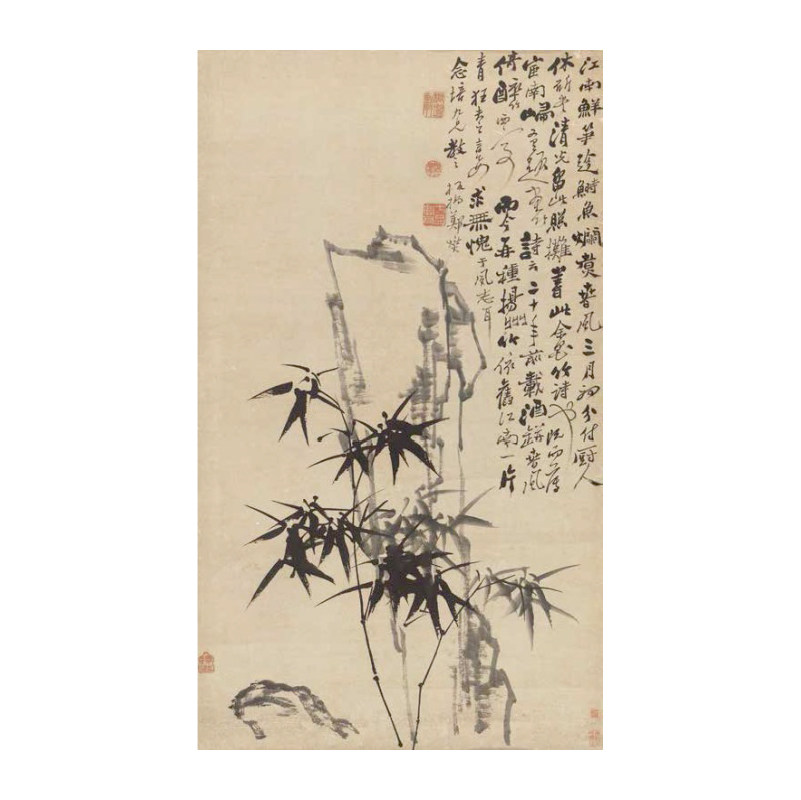 江南鮮筍趁鰣魚爛煑春風三月初分付廚人
休斫盡清光留此照攤書此余畫竹詩也既而落
宦南歸又題畫竹詩云二十年前載酒缾春風
倚醉竹西亭而今再種揚州竹依舊江南一片
青狂夫之言要求無愧于風志耳
念培九兄教之板橋鄭燮